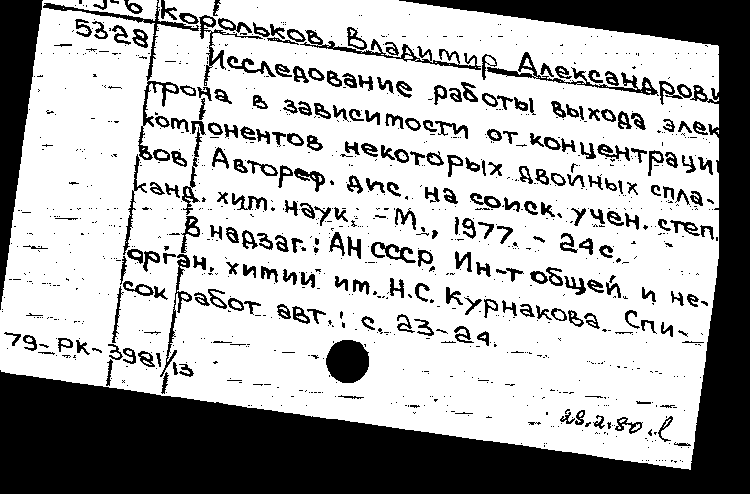 Корольков, Владимир Александрови
5328
Исследование работы выхода элек
трона в зависимости от концентраци
компонентов некоторых двойных спла-
вов. Автореф. дис. на соиск. учен. степ.
канд. хим. наук. - М., 1977. - 24 с.
В надзаг.: АН СССР, Ин-т общей и не-
орган. химии им. Н.С. Курнакова. Спи-
сок работ авт.: с. 23-24.
79-РК-3981/13
29.2.80.